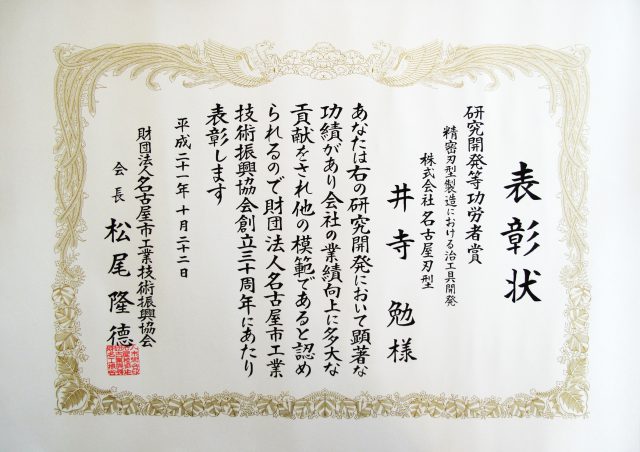 表彰状
研究開発等功労者賞
精密刃型製造における治工具開発
株式会社名古屋刃型
井寺勉様
あなたは右の研究開発において顕著な
功績があり会社の業績向上に多大な
貢献をされ他の模範であると認め
られるので財団法人名古屋市工業
技術振興協会創立三十周年にあたり
表彰します
平成二十一年十月二十二日
財団法人名古屋市工業技術振興協会
会長 松尾隆徳